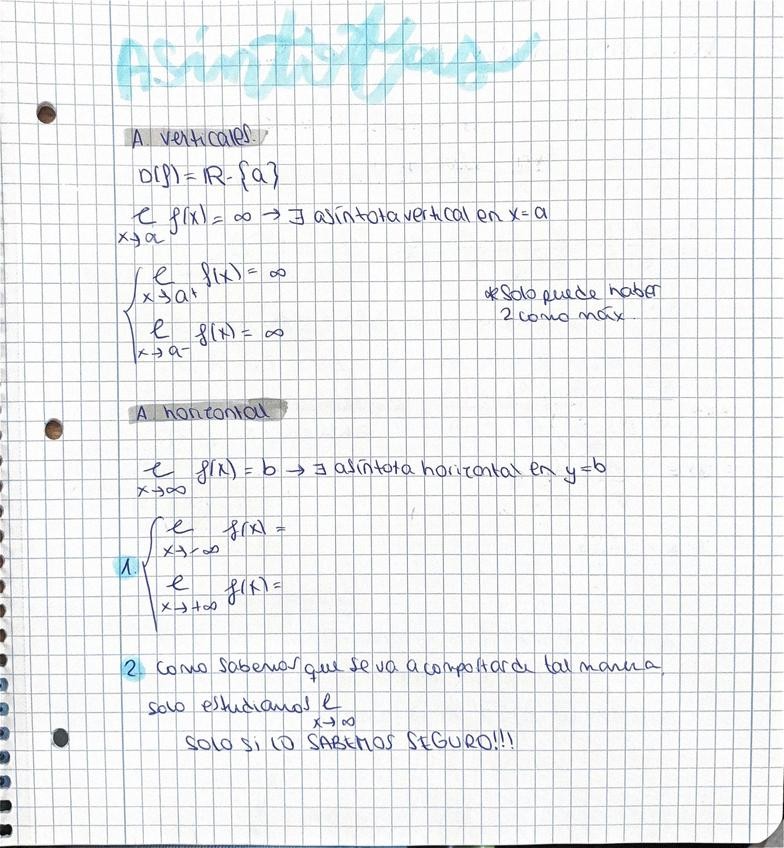 Asíntotas
A. verticales.
D(f) = ℝ - {a}
ℓ f(x) = ∞ → ∃ asíntota vertical en x = a
x→a
ℓ f(x) = ∞
x→a+
*Solo puede haber
2 como máx.
ℓ f(x) = ∞
x→a-
A. horizontal
ℓ f(x) = b → ∃ asíntota horizontal en y = b
x→∞
ℓ f(x) =
x→-∞
1.
ℓ f(x) =
x→+∞
2. Como sabemos que se va a comportar de tal manera,
solo estudiamos ℓ
x→∞
SOLO SI LO SABEMOS SEGURO!!!